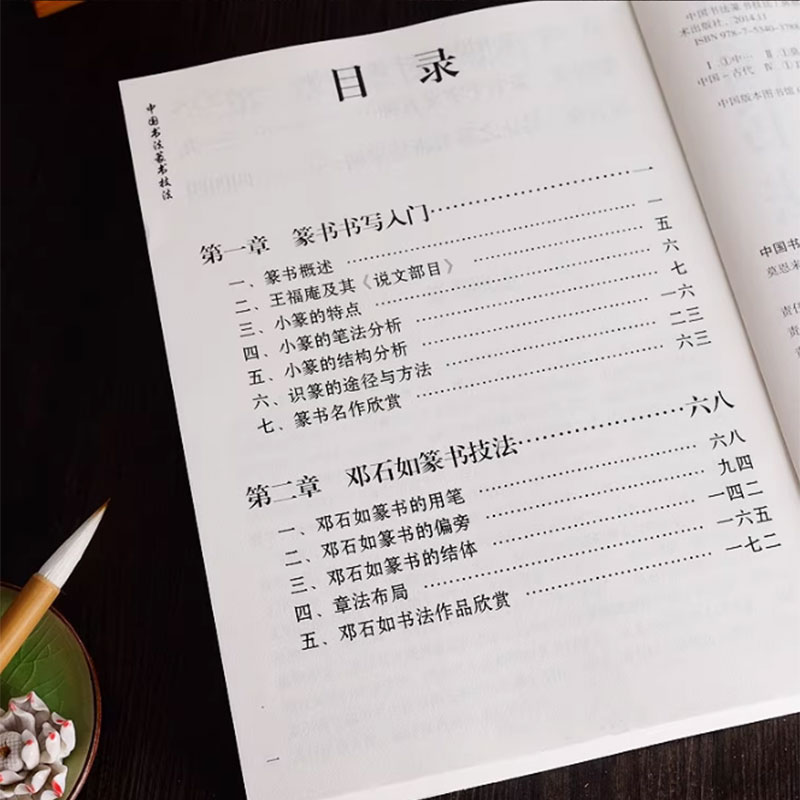 目 录
中国书法篆书技法
第一章 篆书书写入门……………………一
一、篆书概述……………………一
二、王福庵及其《说文部目》……………………五
三、小篆的特点……………………六
四、小篆的笔法分析……………………七
五、小篆的结构分析……………………一六
六、识篆的途径与方法……………………二三
七、篆书名作欣赏……………………六三
第二章 邓石如篆书技法……………………六八
一、邓石如篆书的用笔……………………六八
二、邓石如篆书的偏旁……………………九四
三、邓石如篆书的结体……………………一四二
四、章法布局……………………一六五
五、邓石如书法作品欣赏……………………一七二
一
中国书法篆书技法
术出版社，2014.11
ISBN 978-7-5340-
Ⅰ.①中… Ⅱ.①
中国－古代 Ⅳ.①
中国版本图书馆
中国书
莫恩来
责任
责